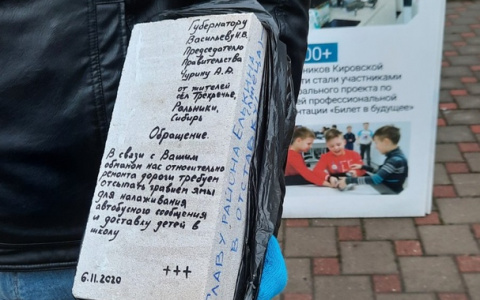 Губернатору
Васильеву И.В.
Председателю
Правительства
Чурину А.А.
от жителей
сёл Трёхречье,
Ральники,
Сибирь
Обращение.
В связи с Вашим
обманом нас относительно
ремонта дороги требуем
отсыпать гравием ямы
для налаживания
автобусного сообщения
и доставку детей в
школу
6.11.2020 +++
ГЛАВУ РАЙОНА
В ОТСТАВКУ
00+
ников Кировской
ти стали участниками
рального проекта по
ей профессиональной
ентации «Билет в будущее»